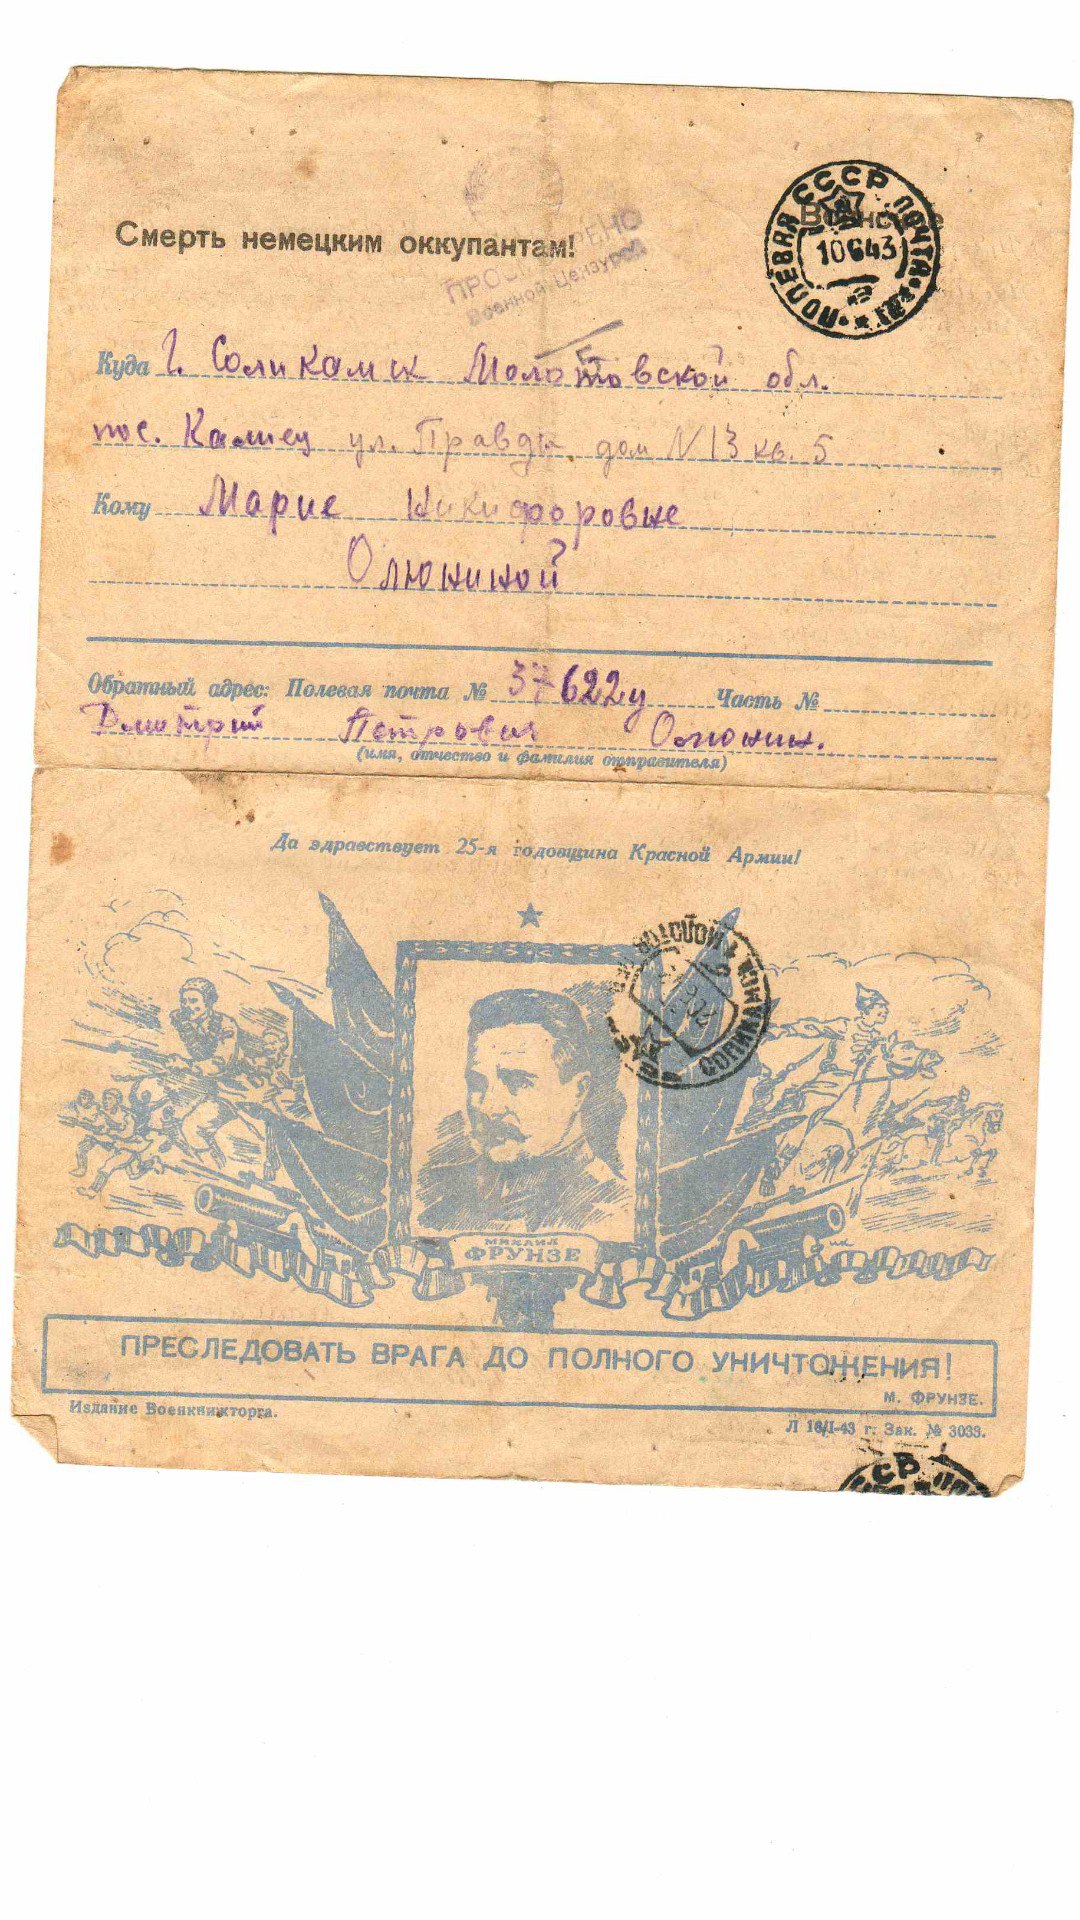 Смерть немецким оккупантам!
ПРОСМОТРЕНО
Военной Цензурой
ПОЛЕВАЯ ПОЧТА
СССР
10 6 43
Куда г. Соликамск Молотовской обл.
пос. Калиец ул. Правды дом N 13 кв. 5
Кому Марие Никифоровне
Олюниной
Обратный адрес: Полевая почта № 37622у Часть №
Дмитрий Петрович Олюнин.
(имя, отчество и фамилия отправителя)
Да здравствует 25-я годовщина Красной Армии!
СОЛИКАМСК
МИХАИЛ
ФРУНЗЕ
ПРЕСЛЕДОВАТЬ ВРАГА ДО ПОЛНОГО УНИЧТОЖЕНИЯ!
М. ФРУНЗЕ.
Издание Военкнижторга.
Л 16/I-43 г. Зак. № 3033.